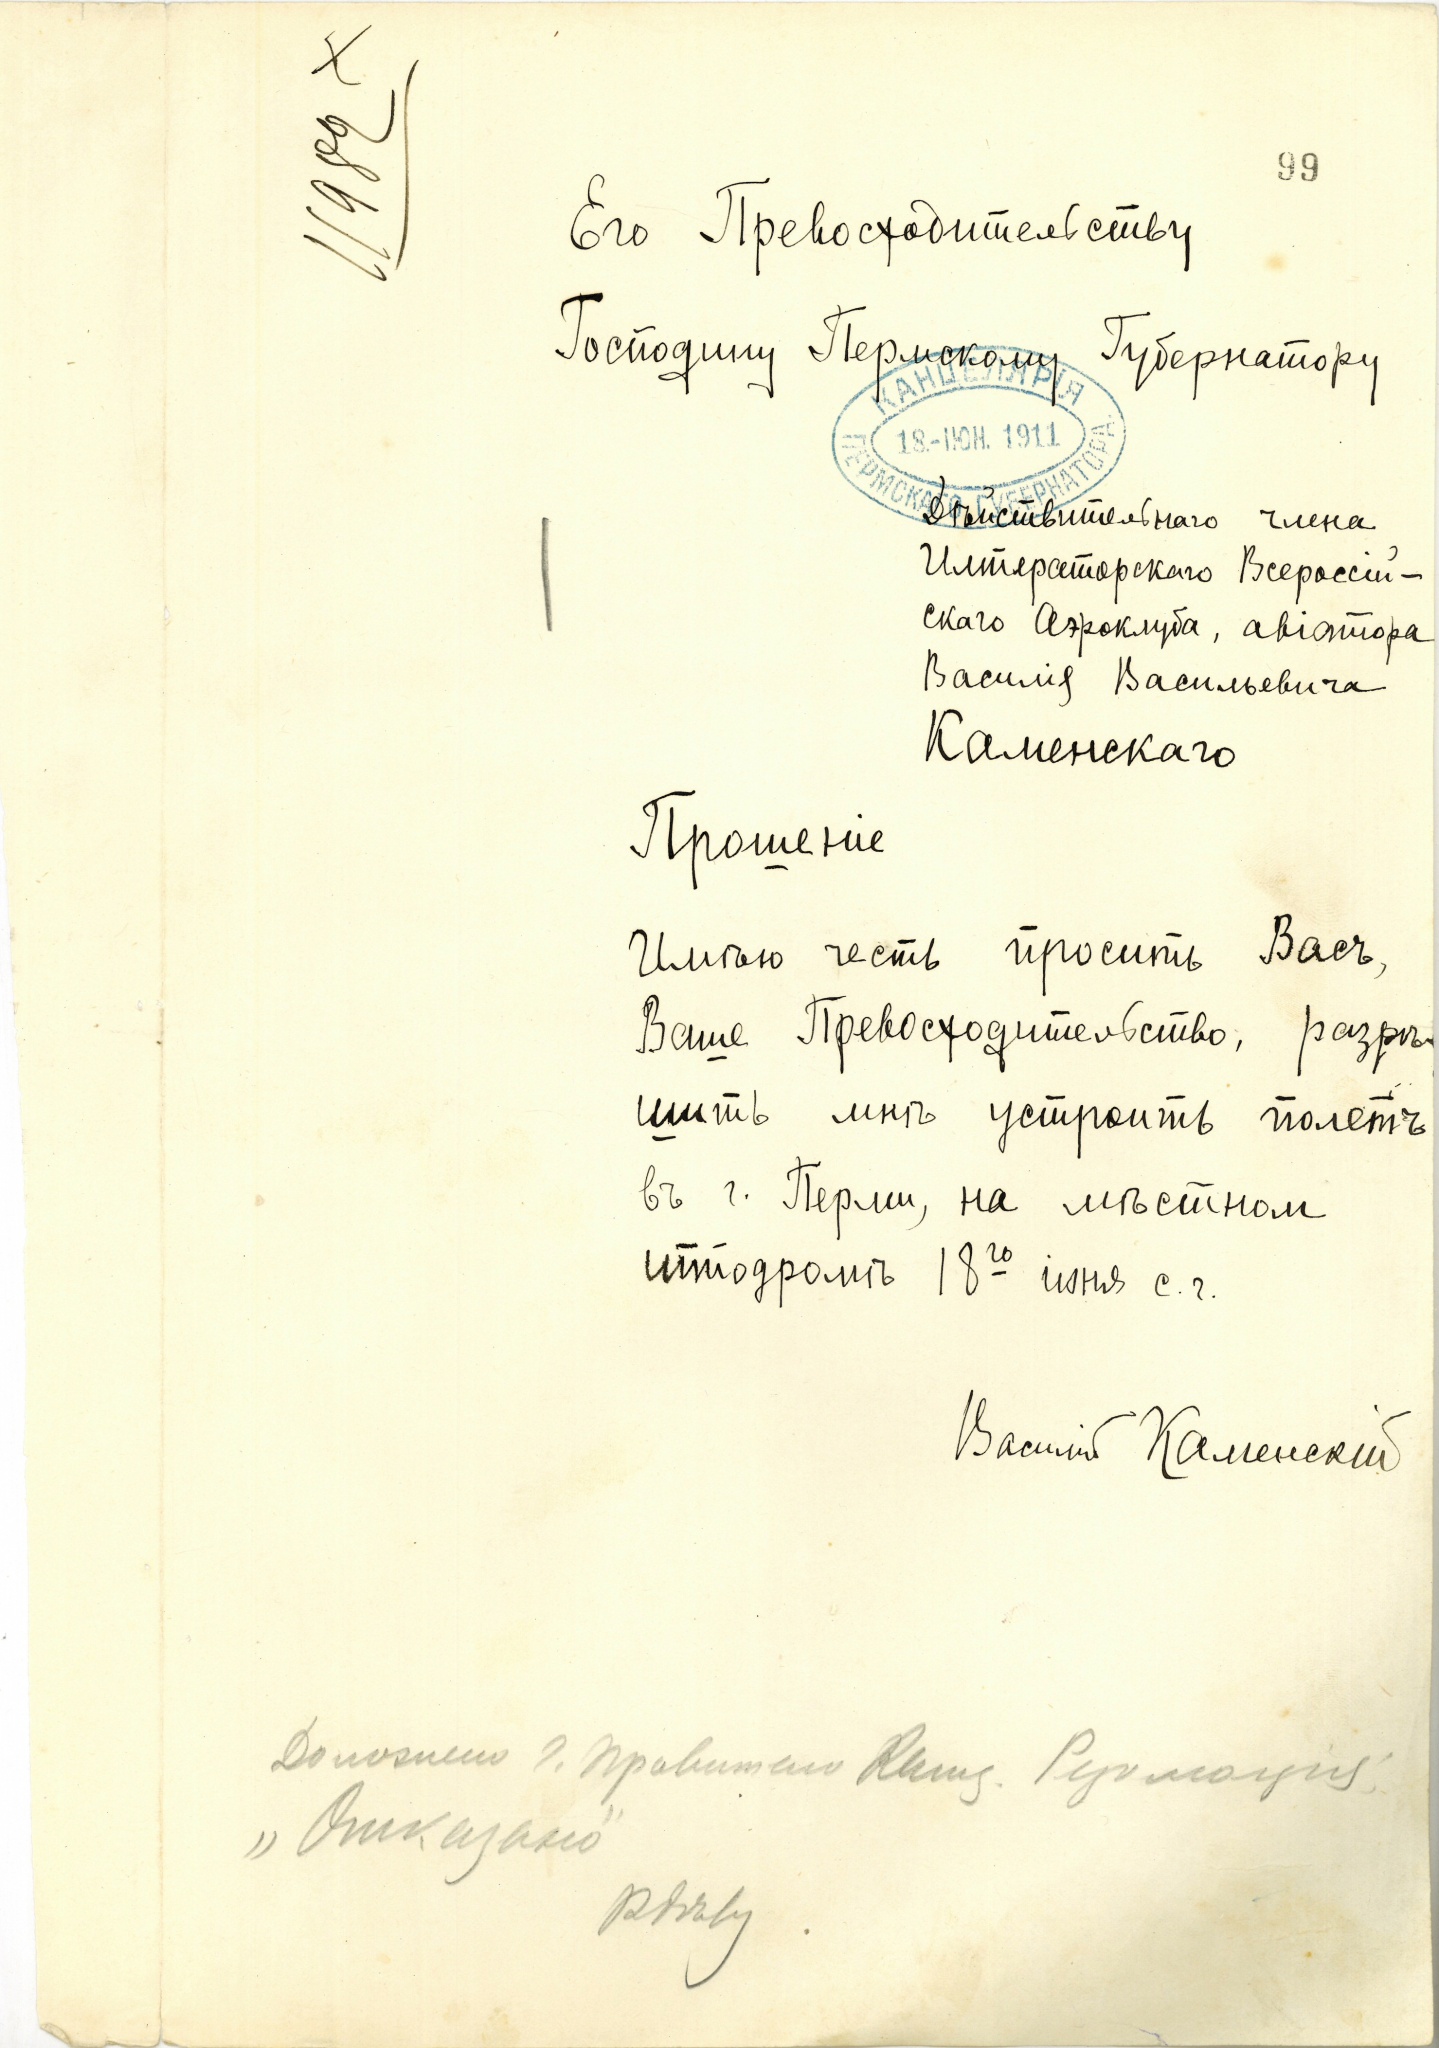 99
Его Превосходительству
Господину Пермскому Губернатору
КАНЦЕЛЯРІЯ
18.-ІЮН. 1911
ПЕРМСКАГО ГУБЕРНАТОРА.
Дѣйствительнаго члена
Императорскаго Всероссій-
скаго Аэроклуба, авіатора
Василія Васильевича
Каменскаго
Прошеніе
Имѣю честь просить Васъ,
Ваше Превосходительство, разрѣ-
шить мнѣ устроить полетъ
въ г. Перми, на мѣстном
ипподромѣ 18го іюня с. г.
Василій Каменскій
Доложено г. Правителю Канц. Резолюція:
„Отказано"
К дѣлу